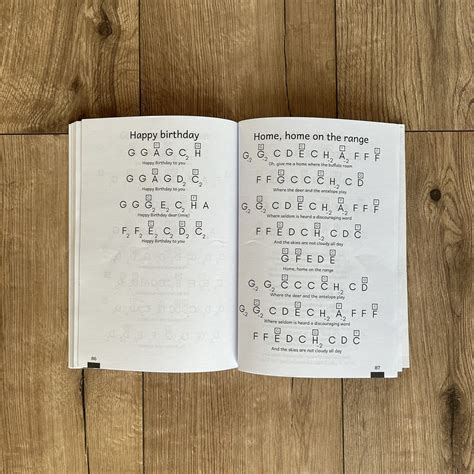 Happy birthday
G G A G C2 H
Happy Birthday to you
G G A G D2 C2
Happy Birthday to you
G G G2 E2 C2 H A
Happy Birthday dear (imię)
F2 F2 E2 C2 D2 C2
Happy Birthday to you
86
Home, home on the range
G2 G2 C D E C H2 A2 F F F
Oh, give me a home where the buffalo roam
F F G C C C H2 C D
Where the deer and the antelope play
G2 G2 C D E C H2 A2 F F F
Where seldom is heard a discouraging word
F F E D C H2 C D C
And the skies are not cloudy all day
G F E D E
Home, home on the range
G2 G2 C C C C H2 C D
Where the deer and the antelope play
G2 G2 C D E C H2 A2 F F F
Where seldom is heard a discouraging word
F F E D C H2 C D C
And the skies are not cloudy all day
87